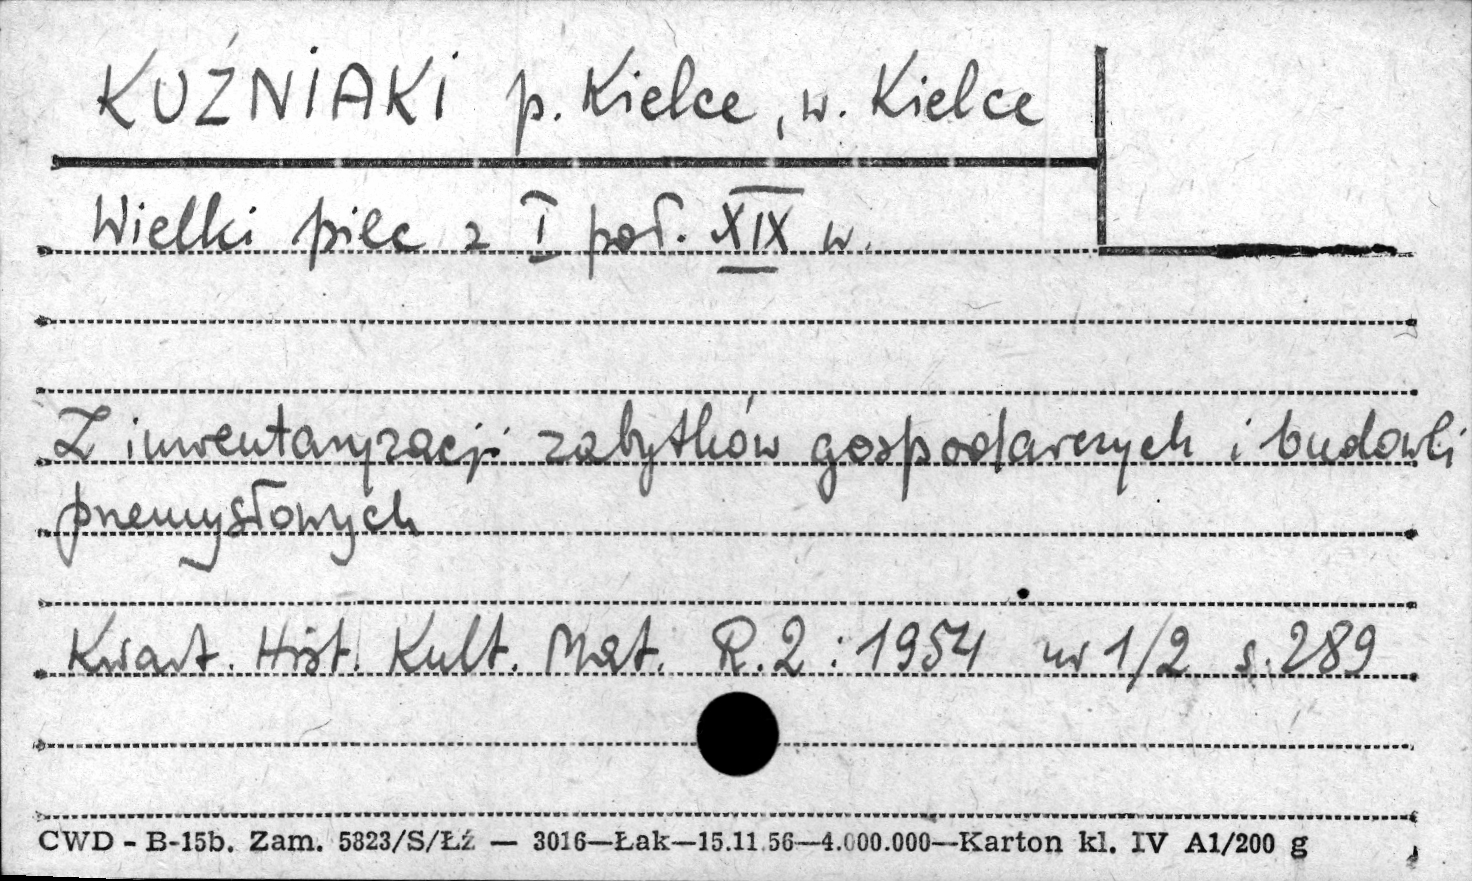 KUŹNIAKI p. Kielce, w. Kielce
Wielki piec z I poł. XIX w.
Z inwentaryzacji zabytków gospodarczych i budowli
przemysłowych
Kwart. Hist. Kult. Mat. R.2:1954 nr 1/2 s.289
CWD - B-15b. Zam. 5823/S/Łź — 3016—Łak—15.11.56—4.000.000—Karton kl. IV A1/200 g